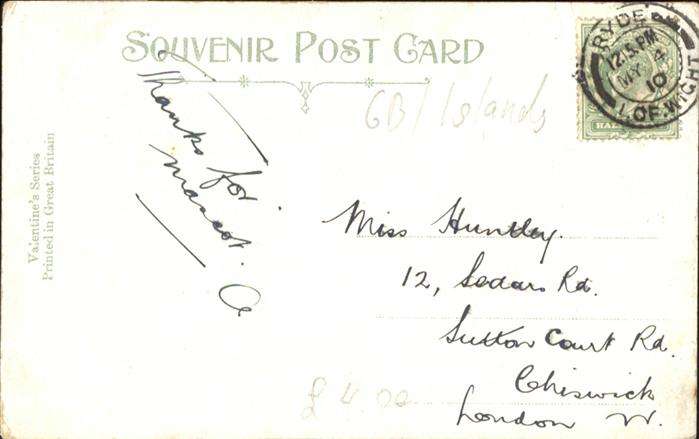 SOUVENIR POST CARD
Valentine's Series
Printed in Great Britain
Thanks for
mascot. C
GB/Islands
RYDE
12.15 PM
MY 4
10
I. OF. WIGHT
HALF
Miss Huntley.
12, Sedars Rd.
Sutton Court Rd.
Chiswick
London W.
£4.00